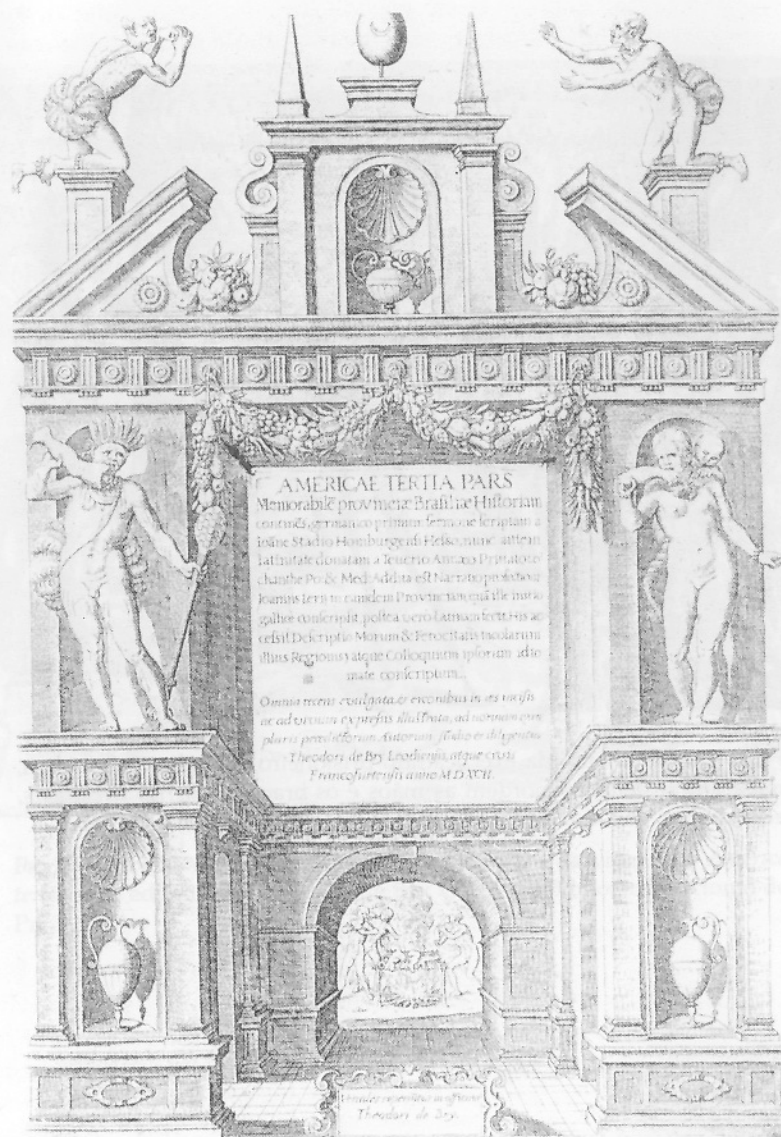 AMERICAE TERTIA PARS
Memorabilē provinciæ Brasiliæ Historiam
continēs, germanico primum sermone scriptam a
Ioāne Stadio Homburgensi Hesso, nunc autem
latinitate donatam a Teucrio Annæo Privato
chanthe Po: & Med: Addita est Narratio profectionis
Ioannis Lerij in eamdem Provinciam, quā ille initio
gallicè conscripsit, postea vero Latinam fecit. His ac
cessit Descriptio Morum & Ferocitatis incolarum
illius Regionis, atque Colloquium ipsorum idio
mate conscriptum.
Omnia recens evulgata, & eiconibus in æs incisis
ac ad vivum expressis illustrata, ad normam exem
plaris prædictorum Autorum, studio et diligentia
Theodori de Bry Leodiensis, atque civis
Francofurtensis anno MDXCII.
Venales reperiūtur in officina
Theodori de Bry.